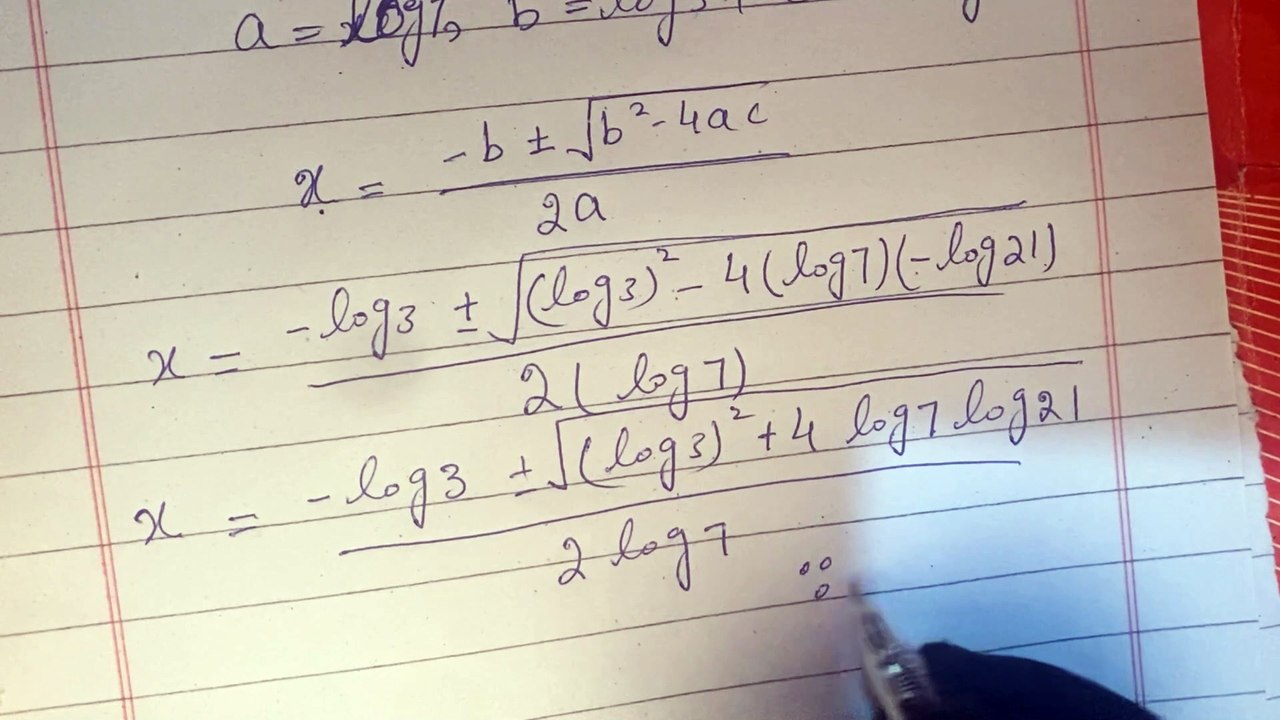 a = log7, b = log3
x = -b ± √b² - 4ac / 2a
x = -log3 ± √(log3)² - 4(log7)(-log21) / 2(log7)
x = -log3 ± √(log3)² + 4 log7 log21 / 2 log7